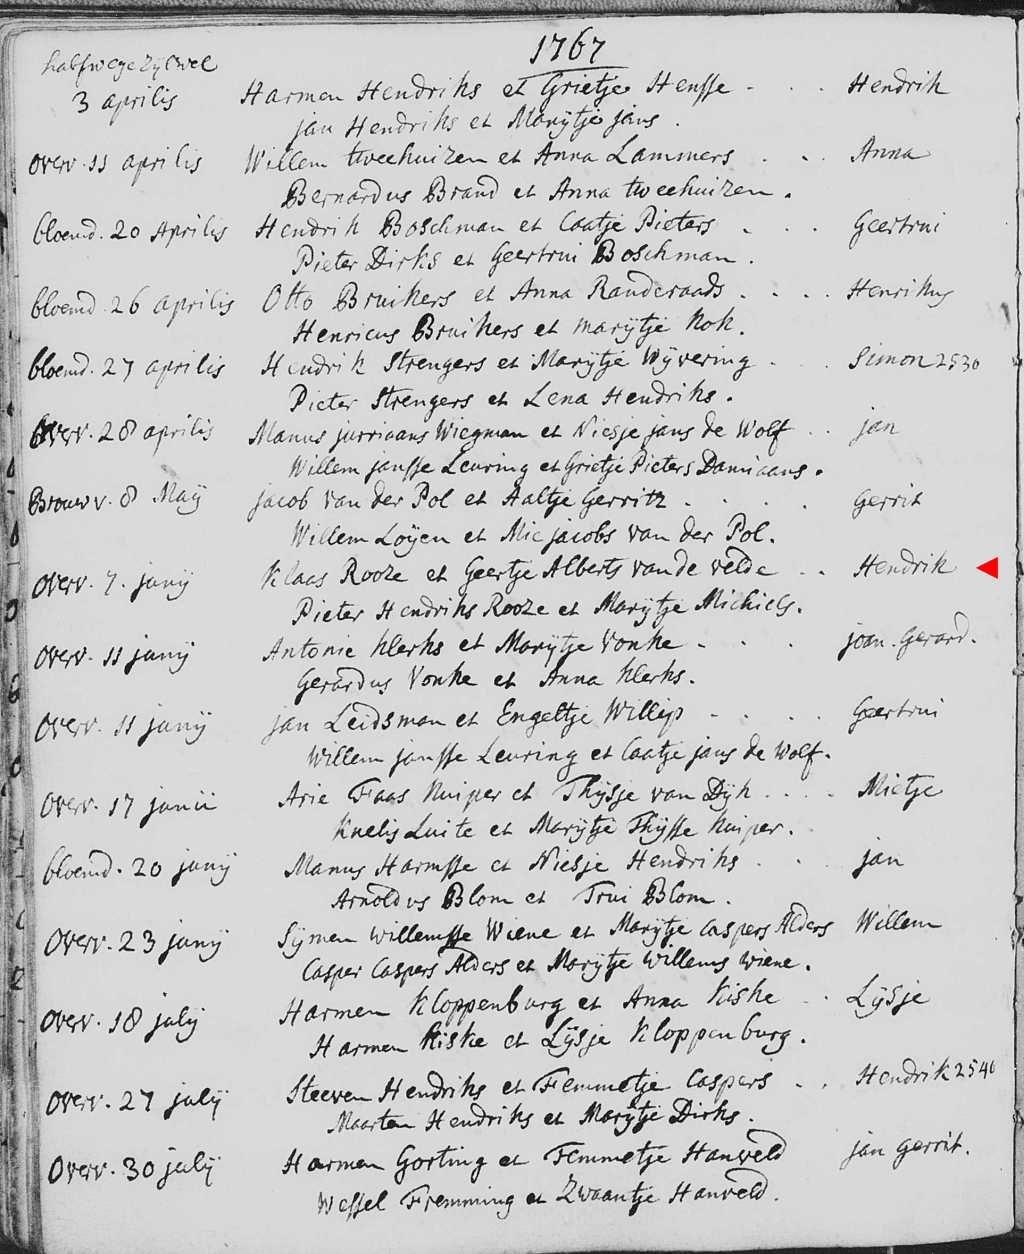 1767
halfwege Zylwel
3 aprilis Harmen Hendriks et Grietje Hensse - . . Hendrik
jan Hendriks et Marÿtje jans.
overv. 11 aprilis Willem tweehuizen et Anna Lammers . . . Anna
Bernardus Brand et Anna tweehuizen.
bloemd. 20 Aprilis Hendrik Boschman et Caatje Pieters . . . Geertrui
Pieter Dirks et Geertrui Boschman.
bloemd. 26 aprilis Otto Bruikers et Anna Randeraads . . . . Henrikus
Henricus Bruikers et marÿtje Kok.
bloemd. 27 aprilis Hendrik Strengers et Marÿtje Wÿvering . . . Simon 2530
Pieter Strengers et Lena Hendriks.
Overv. 28 aprilis Manus jurriaans Wiegman et Niesje jans de Wolf . . jan
Willem jansse Leuring et Grietje Pieters Damiaans.
Brouw v. 8 Maÿ jacob van der Pol et Aaltje Gerritz . . . . Gerrit
Willem Loÿen et Mie jacobs van der Pol.
overv. 7. junÿ Klaas Rooze et Geertje Alberts van de velde . . Hendrik
Pieter Hendriks Rooze et Marÿtje Michiels.
overv. 11 junÿ Antonie Klerks et Marÿtje Vonke - . . . joan. Gerard.
Gerardus Vonke et Anna Klerks.
overv. 11 junÿ jan Leidsman et Engeltje Willep . . . . Geertrui
Willem jansse Leuring et Caatje jans de Wolf.
overv. 17 junii Arie Faas Kuiper et Thÿsje van Dÿk . . . . Mietje
Knelis Luite et Marÿtje Thÿsse Kuiper.
bloemd. 20 junÿ Manus Harmsse et Niesje Hendriks . . jan
Arnoldus Blom et Trui Blom.
Overv. 23 junÿ Sÿmen willemsse Wiene et Marÿtje Caspers Alders Willem
Casper Caspers Alders et Marÿtje Willems wiene.
Overv. 18 julÿ Harmen Kloppenburg et Anna Kiske . . Lÿsje
Harmen Kiske et Lÿsje Kloppenburg.
overv. 27 julÿ Steeven Hendriks et Femmetje Caspers . . Hendrik 2540
Maarten Hendriks et Marÿtje Dirks.
Overv. 30 julÿ Harmen Gorting et Femmetje Hanveld jan Gerrit.
Wessel Fremming et Zwaantje Hanveld.